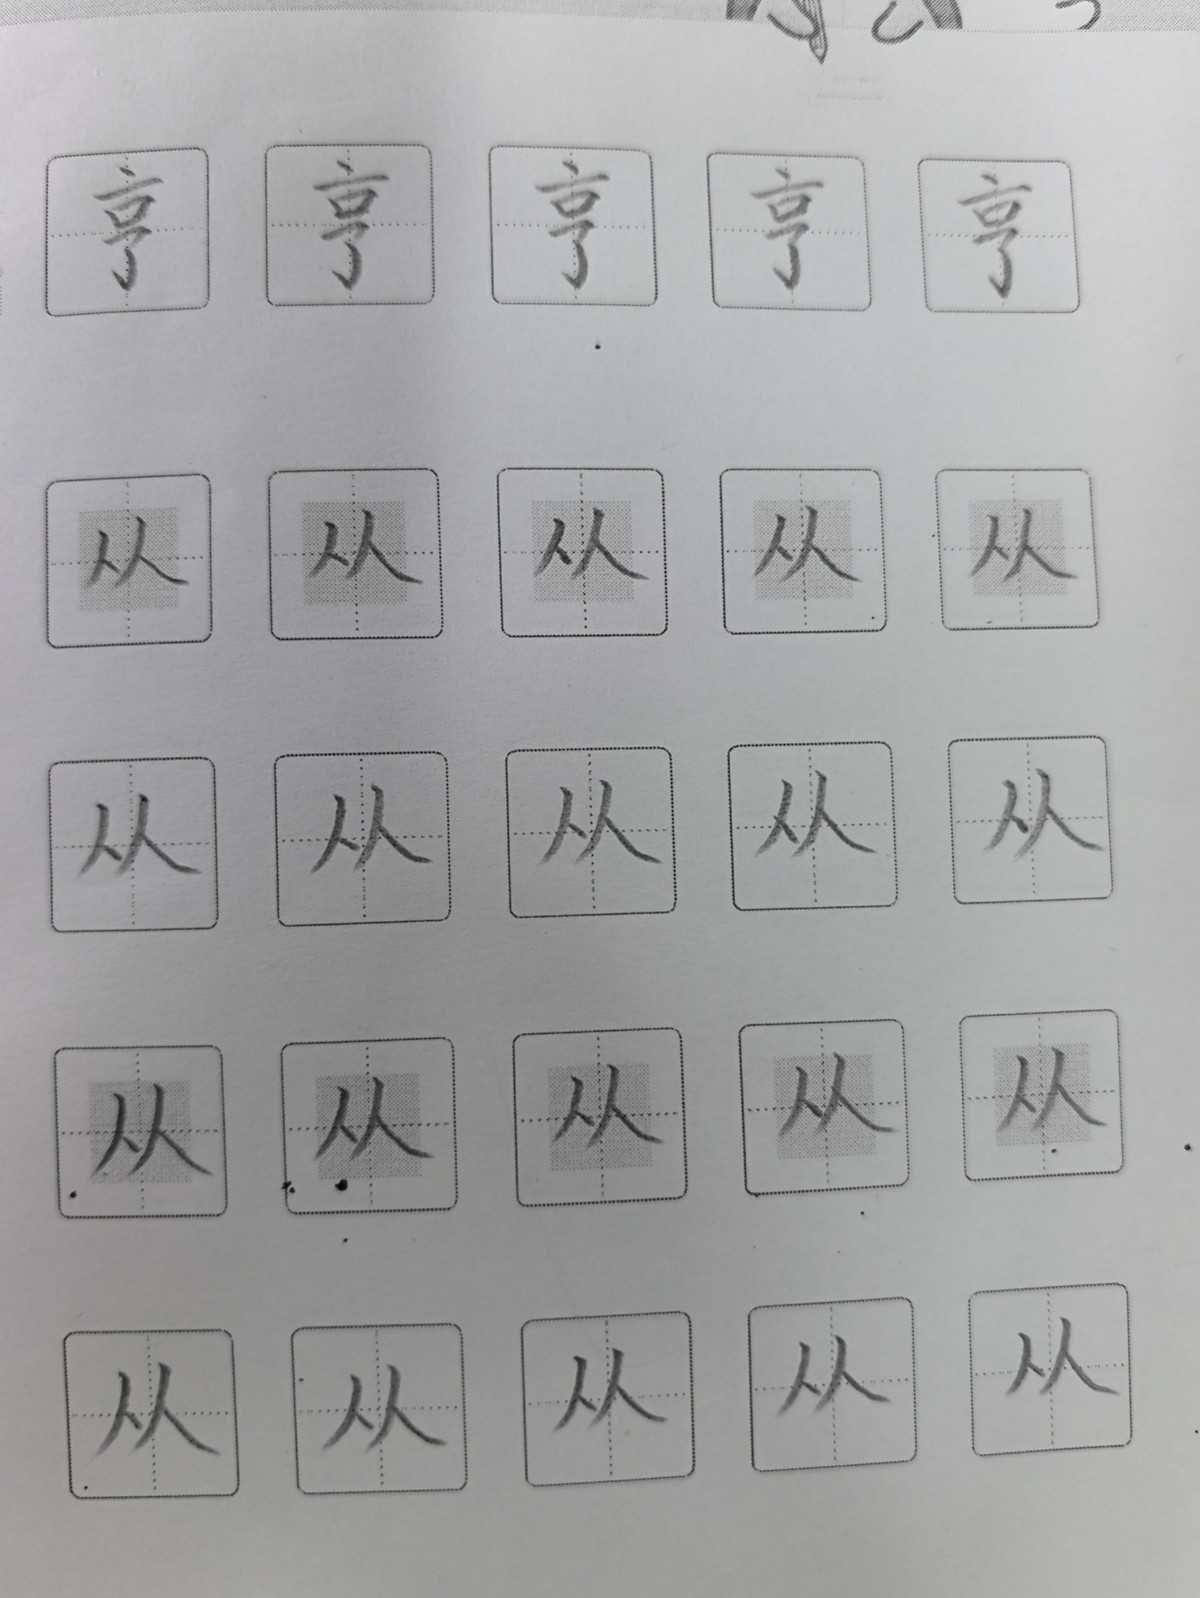 亨 亨 亨 亨 亨
从 从 从 从 从
从 从 从 从 从
从 从 从 从 从
从 从 从 从 从